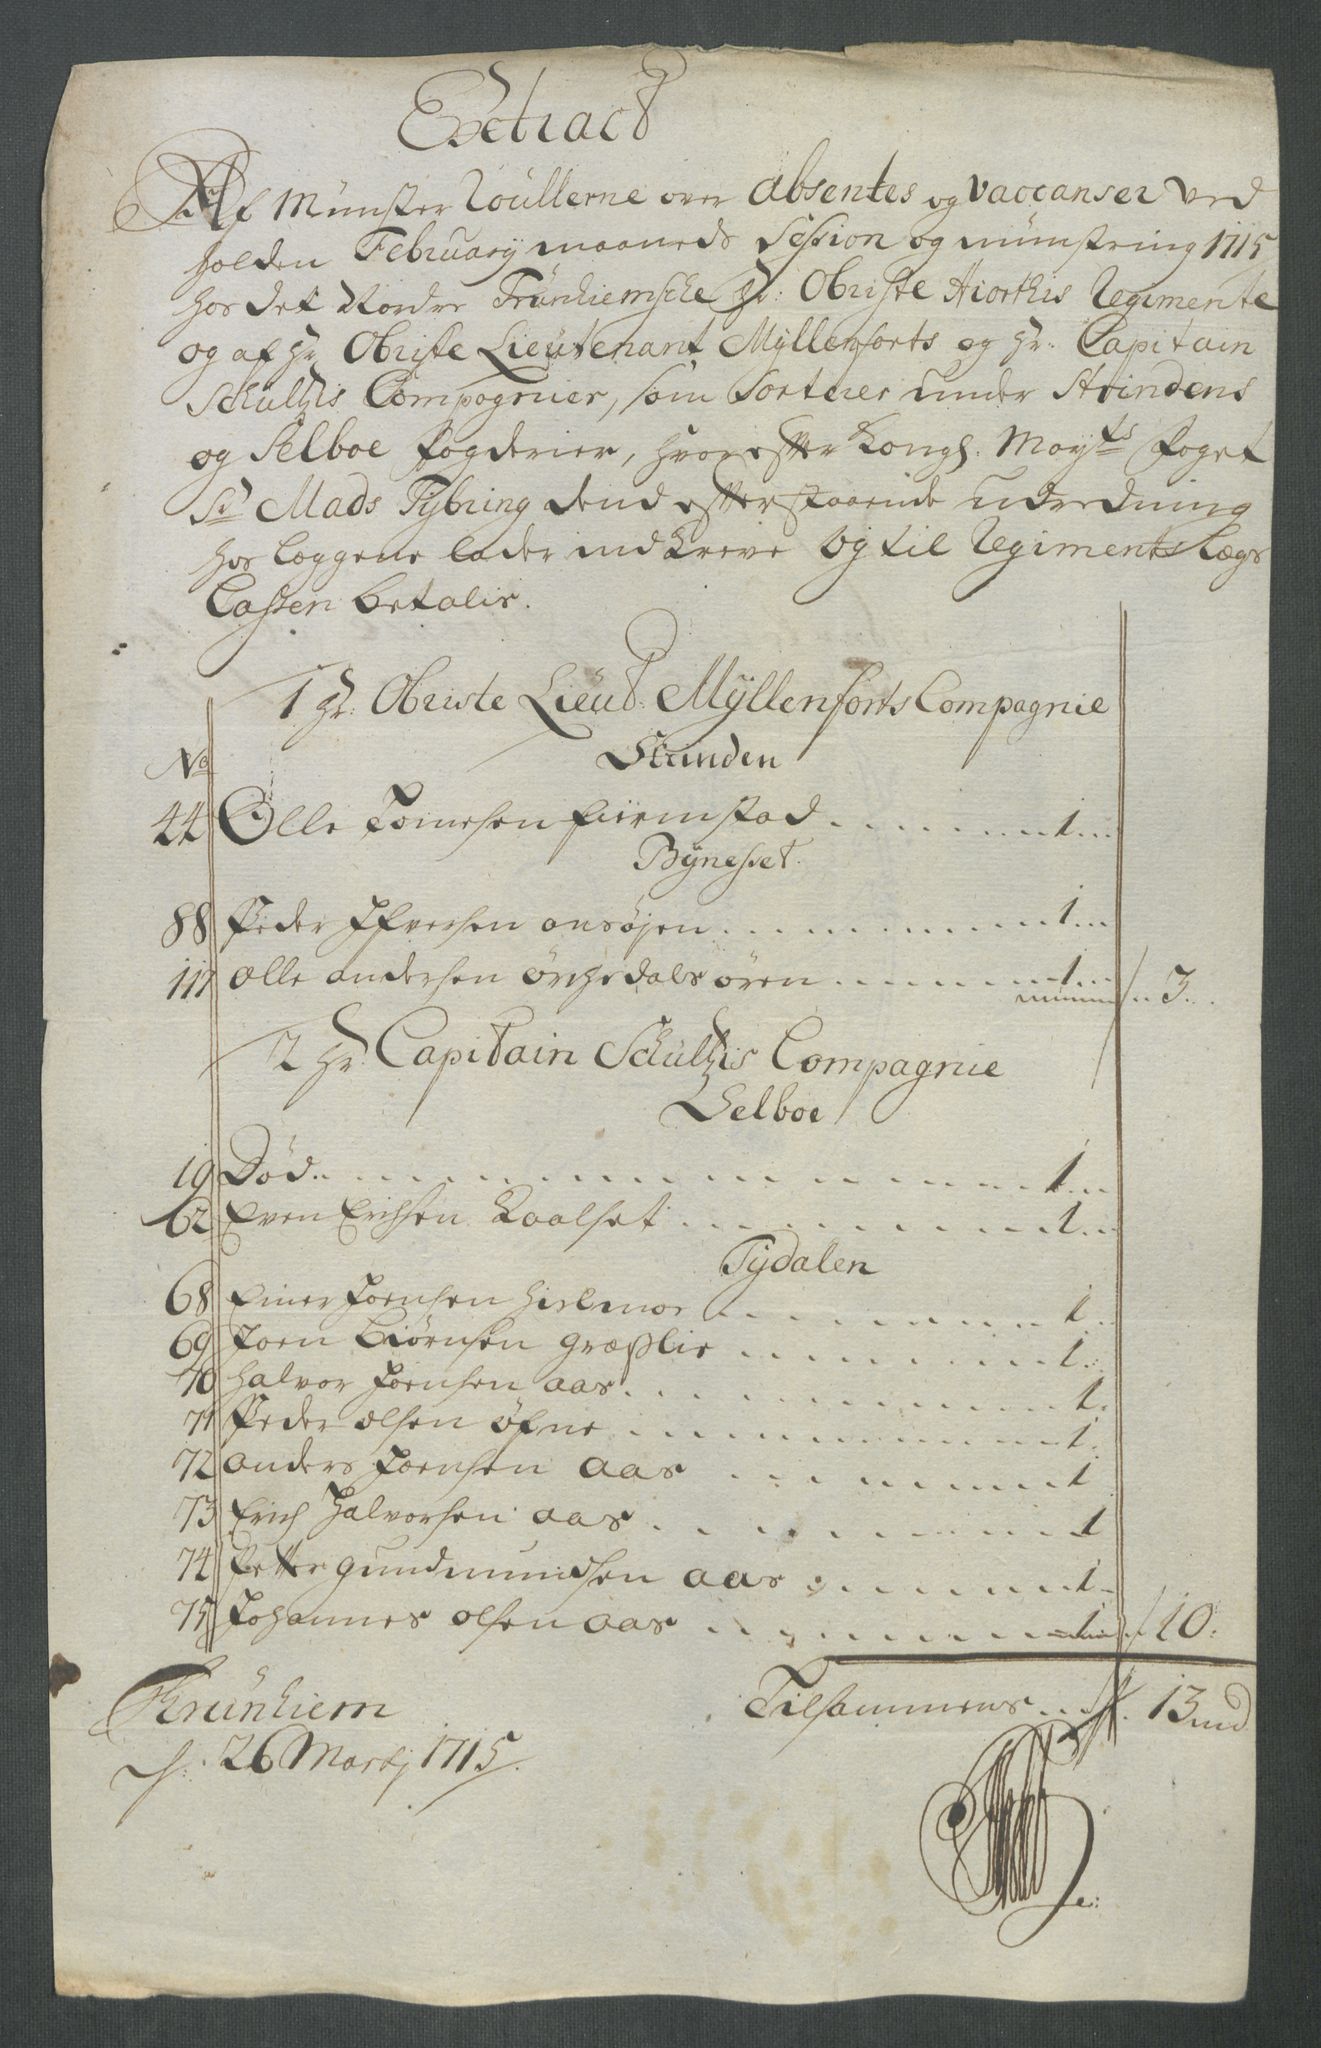 Extract
Af Münster Roullerne over Absentes og vaccanser ved
holden February maaneds Session og münstring 1715
hos det Nordre Trünhiemsche Hr: Obriste Hiorthis Regimente
og af Hr Obriste Lieutenant Mÿllenforts og Hr. Capitain
Schultzis Compagnier, som Sorterer under Strindens
og Selboe fogderier, hvor efter Kongl. Mayts foget
Sr Mads Tybring dend efterstaaende udredning
hos Læggene lader indkreve og til Regiments Lægs
Cassen betalis.
1 Hr: Obriste Lieut: Mÿllenforts Compagnie
No
Strinden
44 Olle Joensen fiermstad 1
Bÿnesset
88 Peder Ifversen onsøjen 1
117 Olle andersen örchedals ören 1 3
2 Hr Capitain Schultzis Compagnie
Selboe
19 Död 1
62 Even Erichsen Kaalset 1
Tydalen
68 Einer Joensen hielmoe 1
69 Joen Biørnsen græslie 1
70 Halvor Joensen aas 1
71 Peder olsen öfne 1
72 anders Joensen aas 1
73 Erich Halvorsen aas 1
74 Petter gundmundsen aas 1
75 Johannes olsen aas 1 10
Tilsammens 13 md
Trünhiem
d. 26 Martj 1715.